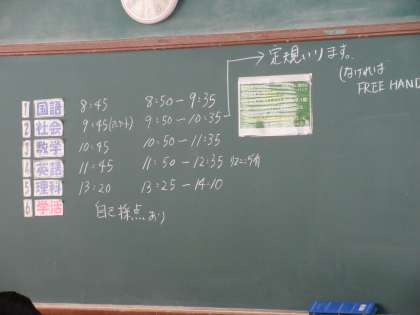 定規いります。
(なければ
FREE HAND
1 国語 8:45 8:50-9:35
2 社会 9:45 9:50-10:35
3 数学 10:45 10:50-11:35
4 英語 11:45 11:50-12:35
5 理科 13:20 13:25-14:10
6 学活 自己採点あり